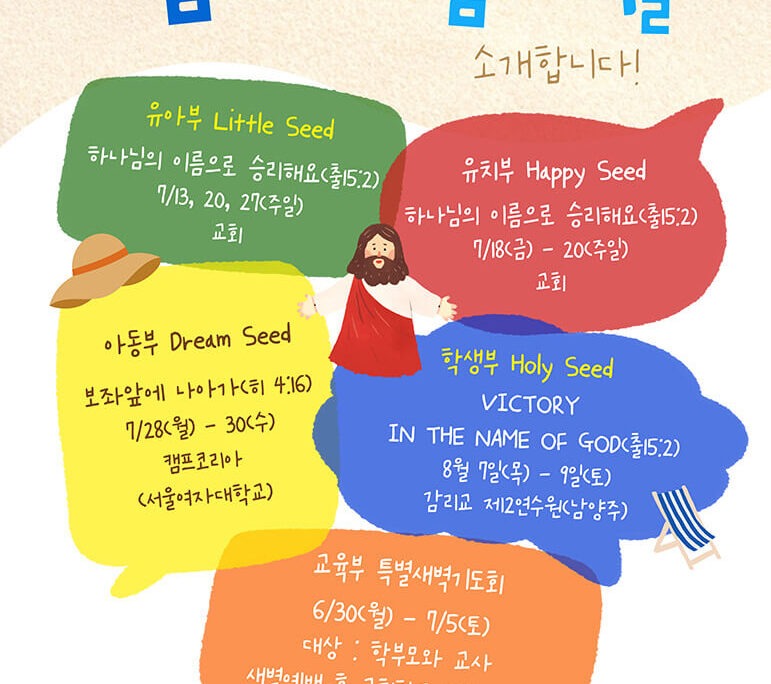 소개합니다!
유아부 Little Seed
하나님의 이름으로 승리해요(출15:2)
7/13, 20, 27(주일)
교회
유치부 Happy Seed
하나님의 이름으로 승리해요(출15:2)
7/18(금) - 20(주일)
교회
아동부 Dream Seed
보좌앞에 나아가(히 4:16)
7/28(월) - 30(수)
캠프코리아
(서울여자대학교)
학생부 Holy Seed
VICTORY
IN THE NAME OF GOD(출15:2)
8월 7일(목) - 9일(토)
감리교 제12연수원(남양주)
교육부 특별새벽기도회
6/30(월) - 7/5(토)
대상 : 학부모와 교사
새벽예배 후